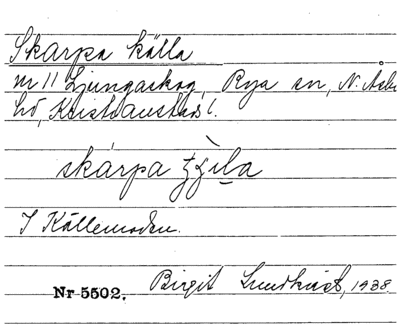 Skarpa källa
nr 11 Ljungaskog, Rya sn, N. Åsbo
hd, Kristianstads l.
skarpa
I Källemaden.
Nr 5502. Birgit Lundkvist, 1938.